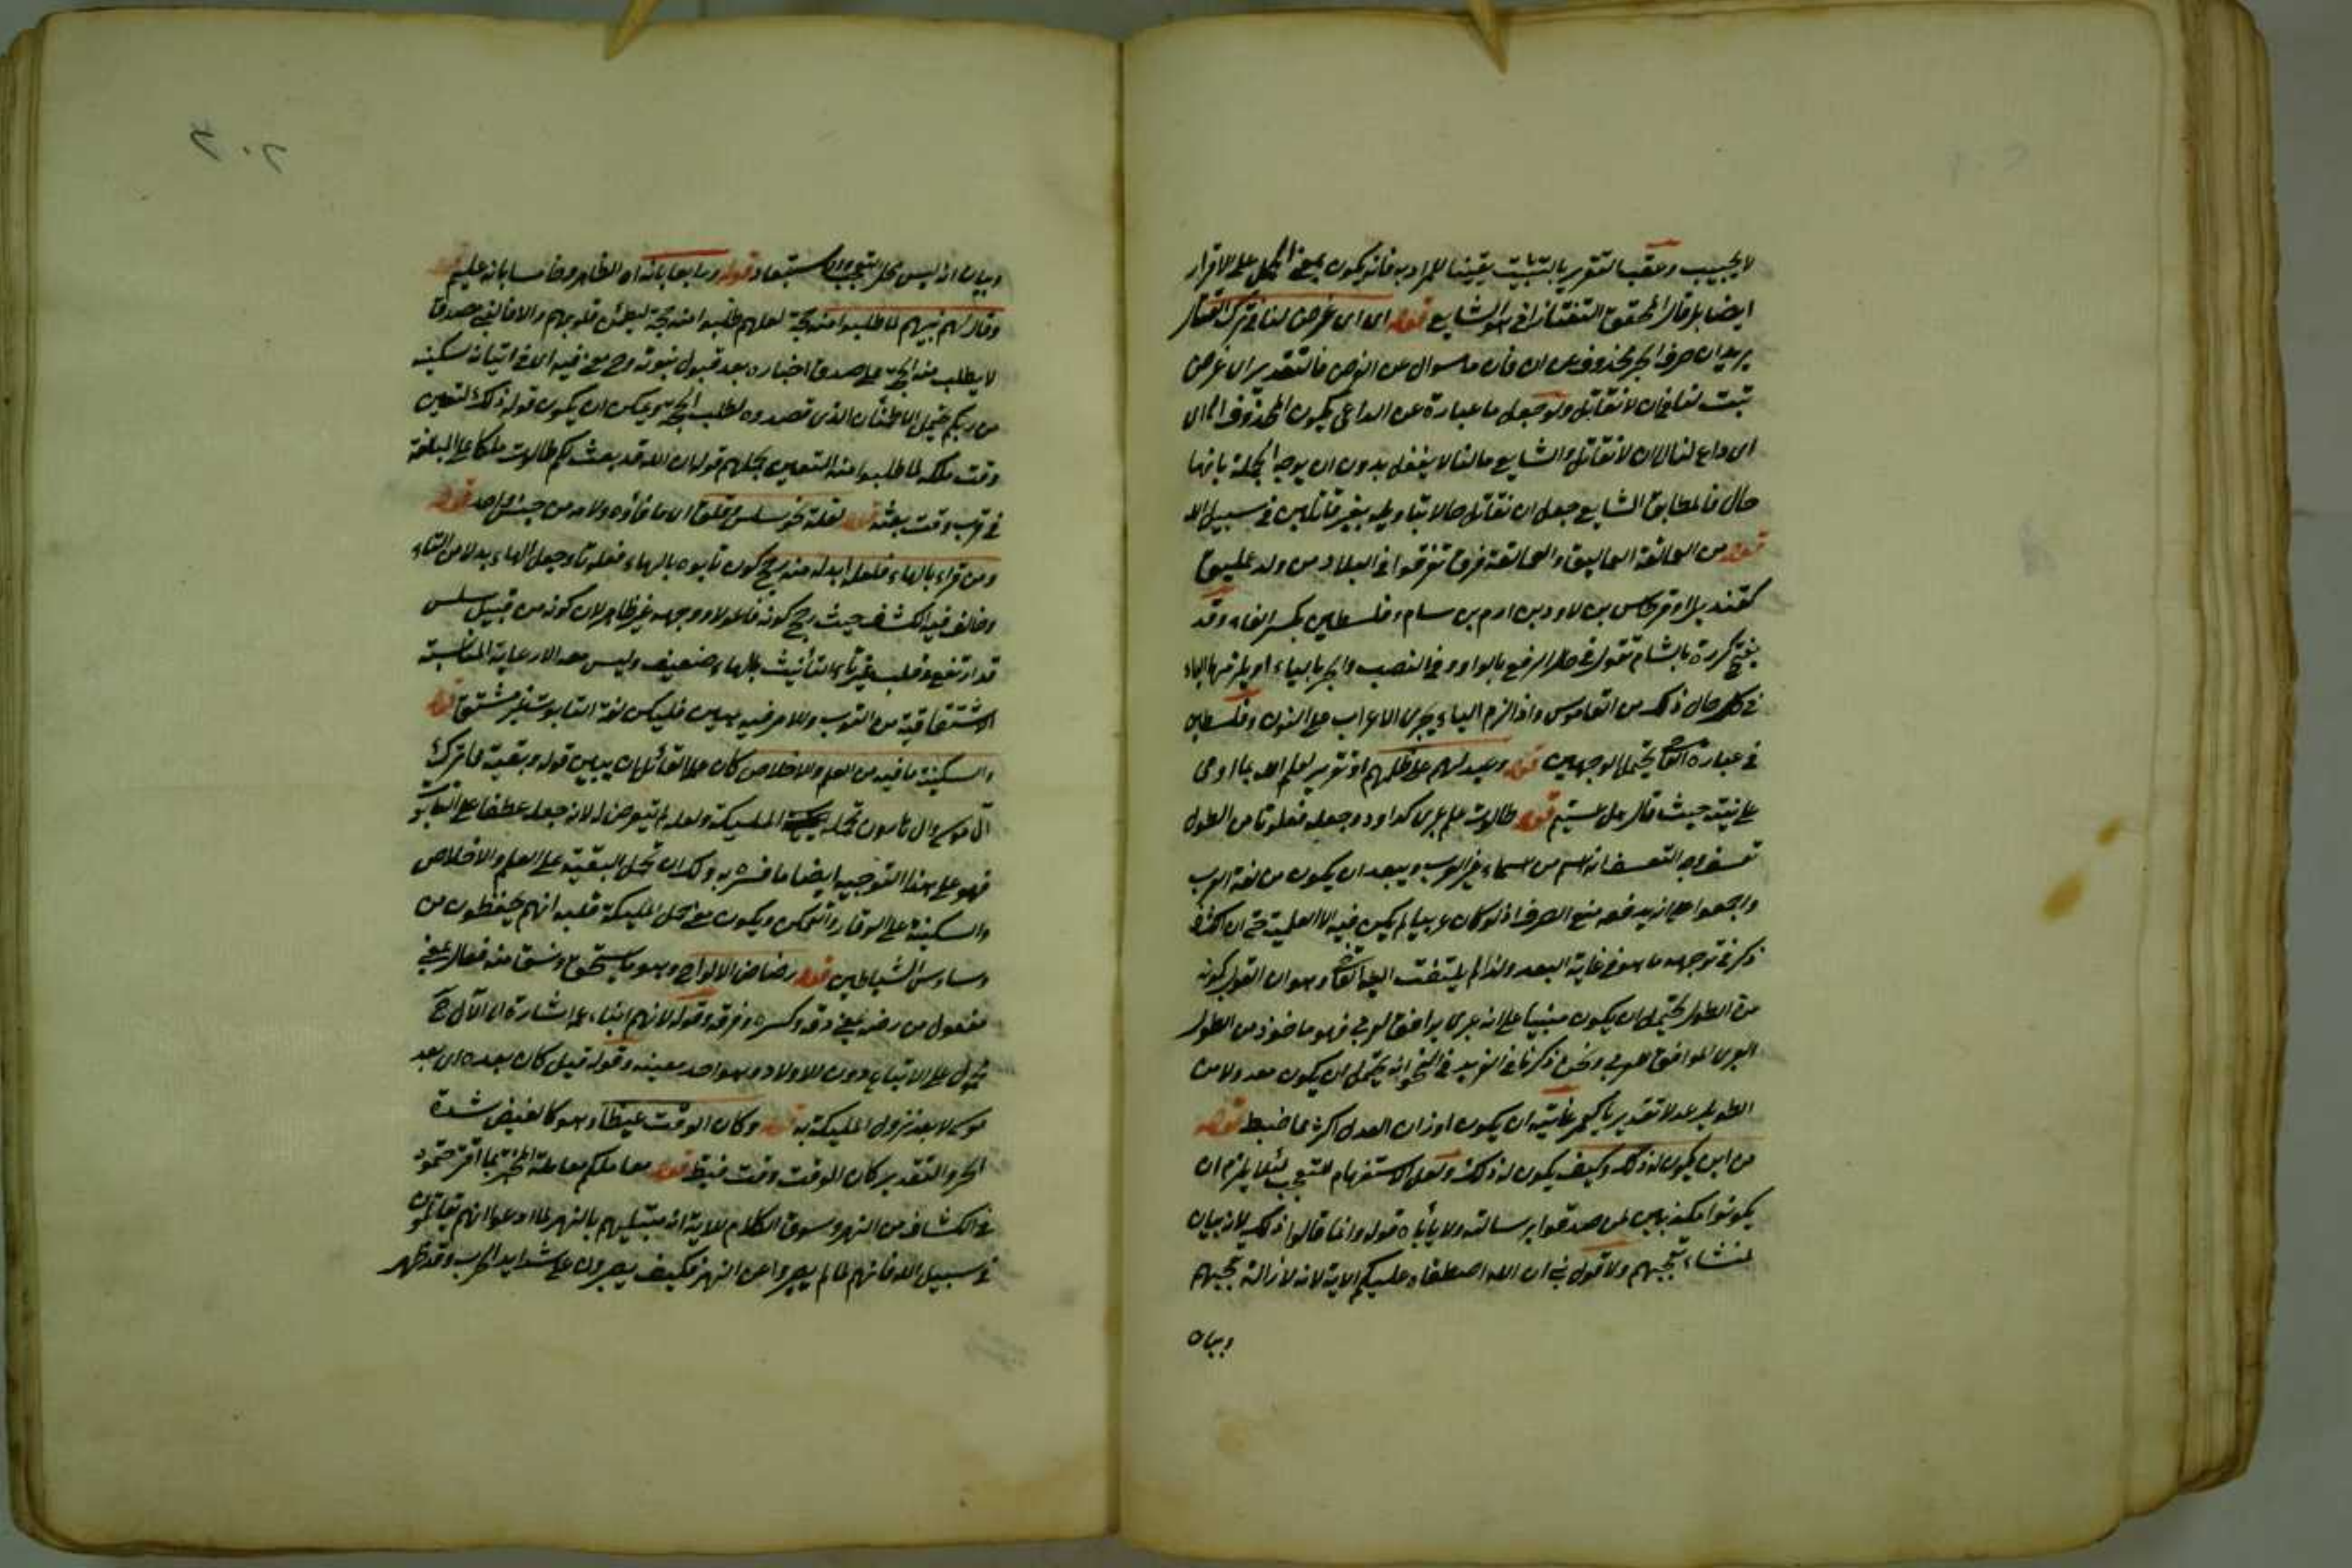 لا يجيب وعقب التقرير بالتثبيت تعيينا للمراد به فانه يكون بمعنى الحمل على الاقرار
ايضا بل قال المحقق التفتازاني هو الشايع قوله اى اى غرض لنا في ترك القتال
يريد ان حرف الجر محذوف من ان فان ما سوال عن الغرض فالتقدير اى غرض
ثبت لنا في ان لا نقاتل ولو جعل ما عبارة عن الداعى يكون المحذوف الى اى
اى داع لنا الى ان لا نقاتل والشايع مالنا لا نفعل بدون ان يوجه الجملة بانها
حال فالمطابق الشايع جعل ان نقاتل حالا بتاويله بغير قاتلين في سبيل الله
قوله من العمالقة العماليق والعمالقة فرق تفرقوا في البلاد من ولد عمليق
كقنديل او قرطاس بن لاود بن ارم بن سام وفلسطين بكسر الفاء وقد
يفتح كورة بالشام تقول في حال الرفع بالواو وفي النصب والجر بالياء او يلزمها الياء
في كل حال ذكره في القاموس واذا لزم الياء يجرى الاعراب على النون وفلسطين
في عبارة القاضى يحتمل الوجهين قوله وعيد لهم على ظلهم او تقرير لعلم الله بما اوحى
على نبيه حيث قال هل عسيتم قوله طالوت علم عبرى كداود وجعله فعلوتا من الطول
تعسف وجه التعسف انه اسم من اسماء غير العرب ويبعد ان يكون من لغة العرب
واجمعوا على انه يدفعه منع الصرف اذ لو كان عربيا لم يكن فيه الا العلمية حتى ان الكشاف
ذكر في توجيهه ما هو في غاية البعد ولذا لم يلتفت اليه القاضى وهو ان القول بكونه
من الطول يحتمل ان يكون مبنيا على انه عبرى يوافق العربى فهو ماخوذ من الطول
العبرى الموافق للعربى ونحن ذكرنا في الفريد في النحو انه يحتمل ان يكون معدولا من
الطويل عدلا تقديريا كعمر غايته ان يكون اوزان العدل اكثر مما ضبط قوله
من اين يكون له ذلك وكيف يكون له ذلك ولعل الاستفهام للتعجب لئلا يلزم ان
يكونوا مكذبين لمن صدقوا برسالته ولا ياباه قوله وانما قالوا ذلك لانه بيان
لمنشاء تعجبهم ولا قوله ان الله اصطفاه عليكم الاية لانه لازالة تعجبهم
وبيان
٢٠٢
وبيان انه ليس محل التعجب والاستبعاد قوله ورابعا بانه اه الظاهر وخامسا بانه عليم قوله
وقال لهم نبيهم لما طلبوا منه حجة لعلهم طلبوا منه حجة ليطمئن قلوبهم والا فالنبى صدق
لا يطلب منه الحجة على صدق اخباره بعد قبول نبوته وح معنى فيه اى في اتيانه سكينة
من ربكم يحتمل الاطمئنان الذى قصدوه لطلب الحجة ويمكن ان يكون قوله ذلك لتعيين
وقت ملكه لما طلبوا منه التعيين بجعلهم قوله ان الله قد بعث لكم طالوت ملكا على المبالغة
في قرب وقت بعثه قوله لقلة نحو سلس وقلق اى ما فاؤه ولامه من جنس واحد قوله
ومن قراء بالهاء فلعله ابدله منه رجح كون تابوه بالهاء فعلوتا وجعل الهاء بدلا من التاء
وخالف فيه الكشاف حيث رجح كونه فاعولا ووجهه غير ظاهر لان كونه من قبيل سلس
قد ارتفع وقلب غير تاء التأنيث بالهاء ضعيف وليس معه الا رعاية المناسبة
الاشتقاقية من التوب والامر فيه هين فليكن لغة التابوت غير مشتق قوله
والسكينة ما فيه من العلم والاخلاص كان على القائل ان يبين قوله وبقية مما ترك
آل موسى وآل هارون تحمله الملئكة ولعله لم يتعرض له لانه جعله عطفا على التابوت
فهو على هذا التوجيه ايضا ما فسره به ولك ان تحمل البقية على العلم والاخلاص
والسكينة على الوقار والتمكن ويكون معنى حمل الملئكة قلبه انهم يحفظون من
وساوس الشياطين قوله رضاض الالواح وهو ما يستحق ونسق منه فعال بمعنى
مفعول من رضه بمعنى دقه وكسره وفرقه وقوله لانهم ابناء عمه اشارة الى ان الآل ح
محمول على الاتباع دون الاولاد وهو احد معنييه وقوله قيل كان بعده اى بعد
موسى لا بعد نزول الملئكة به قوله وكان الوقت غيظا وهو كالغيض شدة
الحر والتقدير كان الوقت وقت غيظ قوله معاملكم معاملة المختبر بما اقترحتموه
في الكشاف من النهر وسوق الكلام للاية انه مبتليهم بالنهر لما ادعوا انهم يقاتلون
في سبيل الله فانهم لما لم يصبروا عن النهر فكيف يصبرون على شدايد الحرب وقد ظهر